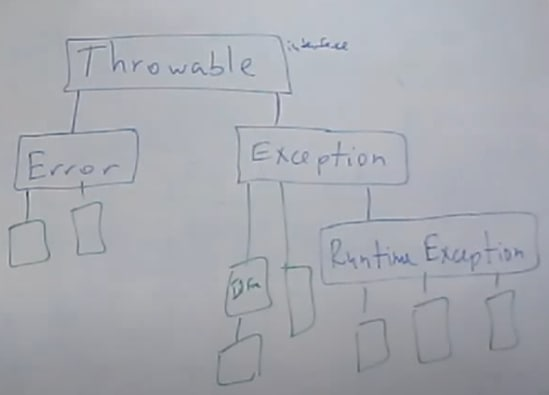 Throwable
interface
Error
Exception
Runtime Exception